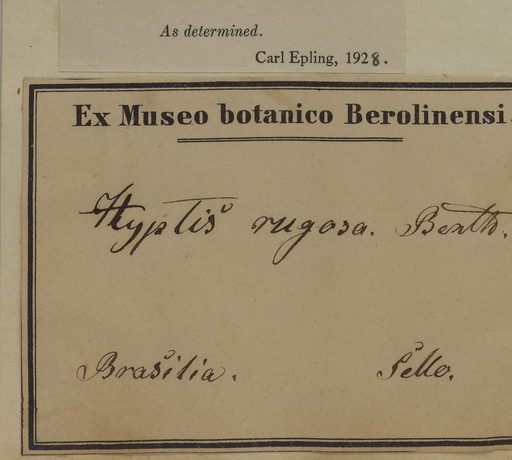 As determined.
Carl Epling, 1928.
Ex Museo botanico Berolinensi.
Hyptis rugosa. Benth.
Brasilia. Sello.